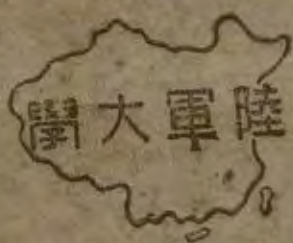 陸軍大學